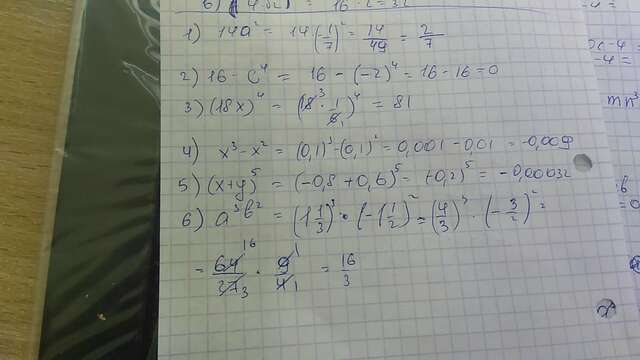 6) (4·
1) 14a² = 14(-1/7)² = 14/49 = 2/7
2) 16 - c⁴ = 16 - (-2)⁴ = 16 - 16 = 0
3) (18x)⁴ = (18³ · 1/6₁)⁴ = 81
4) x³ - x² = (0,1)³ - (0,1)² = 0,001 - 0,01 = -0,009
5) (x+y)⁵ = (-0,8 + 0,6)⁵ = (-0,2)⁵ = -0,00032
6) a³b² = (1 1/3)³ · (-1 1/2)² = (4/3)³ · (-3/2)² =
= 64¹⁶/27₃ · 9¹/4₁ = 16/3
mn³